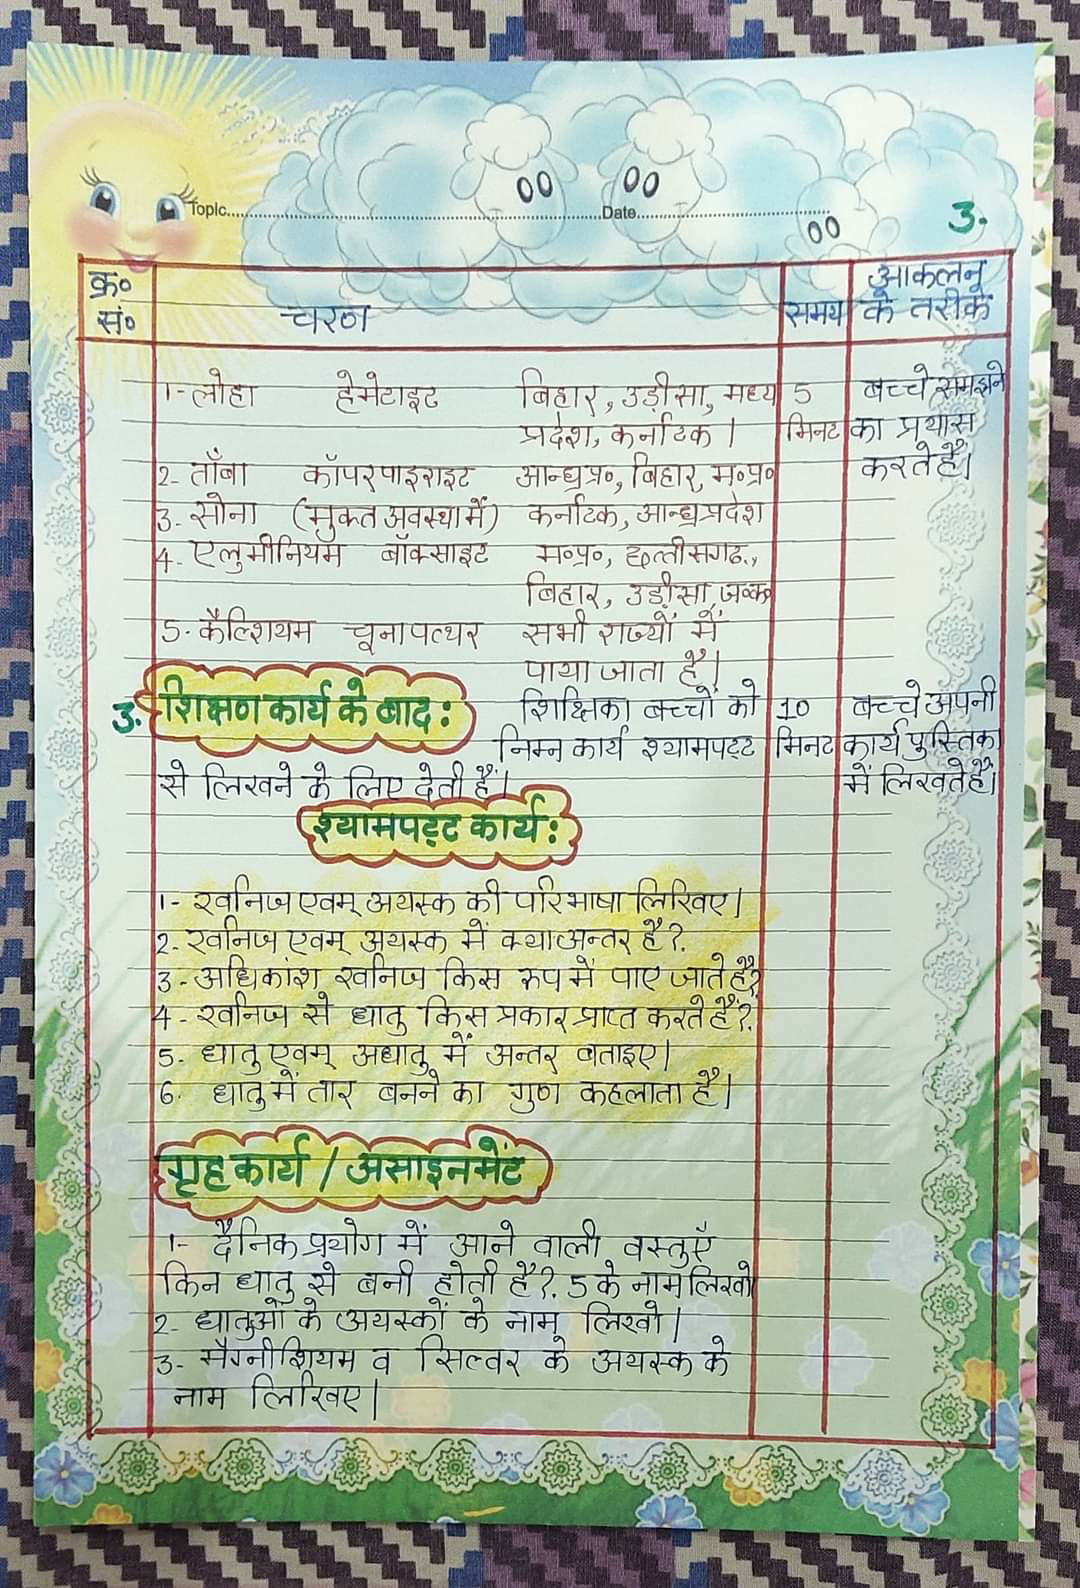 Topic.....................Date.....................
3.
क्र० सं०
चरण
समय
आकलन के तरीके
1-लोहा हेमेटाइट बिहार, उड़ीसा, मध्य 5 बच्चे समझने
प्रदेश, कर्नाटक। मिनट का प्रयास
2- ताँबा कॉपरपाइराइट आन्ध्रप्र०, बिहार, म०प्र० करते हैं।
3- सोना (मुक्त अवस्था में) कर्नाटक, आन्ध्रप्रदेश
4- एलुमीनियम बॉक्साइट म०प्र०, छत्तीसगढ.,
बिहार, उड़ीसा,
5- कैल्शियम चूना पत्थर सभी राज्यों में
पाया जाता है।
3. शिक्षण कार्य के बाद: शिक्षिका बच्चों को 10 बच्चे अपनी
निम्न कार्य श्यामपट्ट मिनट कार्य पुस्तिका
से लिखने के लिए देती हैं। में लिखते हैं।
श्यामपट्ट कार्य:
1- खनिज एवम् अयस्क की परिभाषा लिखिए।
2- खनिज एवम् अयस्क में क्या अन्तर है?
3- अधिकांश खनिज किस रूप में पाए जाते हैं?
4- खनिज से धातु किस प्रकार प्राप्त करते हैं?
5- धातु एवम् अधातु में अन्तर बताइए।
6. धातु में तार बनने का गुण कहलाता है।
गृहकार्य / असाइनमेंट
1- दैनिक प्रयोग में आने वाली वस्तुएँ
किन धातु से बनी होती हैं? 5 के नाम लिखो
2- धातुओं के अयस्कों के नाम लिखो।
3- मैग्नीशियम व सिल्वर के अयस्क के
नाम लिखिए।